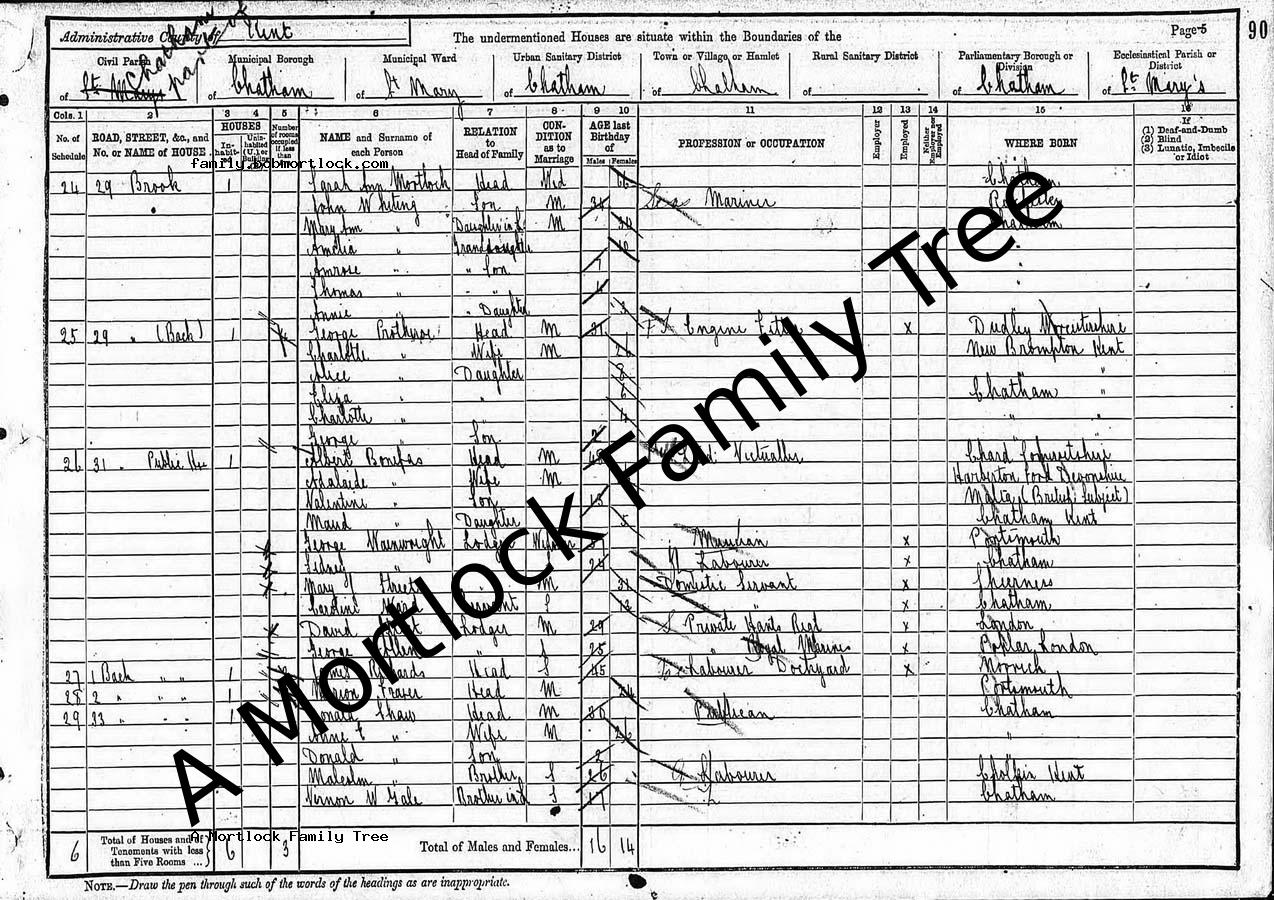 Administrative County of Kent
The undermentioned Houses are situate within the Boundaries of the
Page 5
90
Chatham
parish of
Civil Parish
of St. Mary's
Municipal Borough
of Chatham
Municipal Ward
of St Mary
Urban Sanitary District
of Chatham
Town or Village or Hamlet
of Chatham
Rural Sanitary District
of
Parliamentary Borough or Division
of Chatham
Ecclesiastical Parish or District
of St. Mary's
Cols. 1 2 3 4 5 6 7 8 9 10 11 12 13 14 15 16
No. of Schedule
ROAD, STREET, &c., and No. or NAME of HOUSE
HOUSES
In-habit-
Unin-habited (U.) or Building
Number of rooms occupied if less than
NAME and Surname of each Person
RELATION to Head of Family
CON-DITION as to Marriage
AGE last Birthday of
Males Females
PROFESSION or OCCUPATION
Employer
Employed
Neither Employer nor Employed
WHERE BORN
If
(1) Deaf-and-Dumb
(2) Blind
(3) Lunatic, Imbecile or Idiot
family.bobmortlock.com
24 29 Brook 1 Sarah Ann Mortlock Head Wid 66 Chatham
John Whiting Son M Mariner
Mary Ann " Daughter in L M Chatham
Amelia " Granddaughter
Amrose " " Son 7
Thomas " " " 4
Annie " " Daughter 3
25 29 " (Back) 1 George Head M Engine Fitter x Dudley Worcestershire
Charlotte " Wife M New Brompton Kent
Alice " Daughter 8 "
Eliza " " 6 Chatham "
Charlotte " 4 " "
George " Son 2
26 31 " Public Hse 1 Albert Bonifas Head M Victualler Chard Somersetshire
Adelaide " Wife M Harberton Ford Devonshire
Valentine " Son Malta (British Subject)
Maud " Daughter 5 Chatham Kent
George Wainwright Lodger Widower Musician x Portsmouth
Sidney " S Labourer x Chatham
Mary Street M 31 Domestic Servant x Sheerness
Caroline Servant S " x Chatham
David Lodger M 29 Private Hants Regt x London
George " S 25 " Royal Marines Poplar, London
27 1 Back " " 1 Head S 45 Labourer Dockyard x Norwich
28 2 " " " 1 Fraser Head M 24 Portsmouth
29 33 " " 1 Donald Shaw Head M 30 Publican Chatham
Anne E " Wife M 26 "
Donald " Son 2
Malcolm " Brother S 26 Labourer Kent
Vernon W Gale Brother in L S 17 " Chatham
6
Total of Houses and of Tenements with less than Five Rooms ...
6 3
Total of Males and Females... 16 14
A Mortlock Family Tree
NOTE.—Draw the pen through such of the words of the headings as are inappropriate.
A Mortlock Family Tree